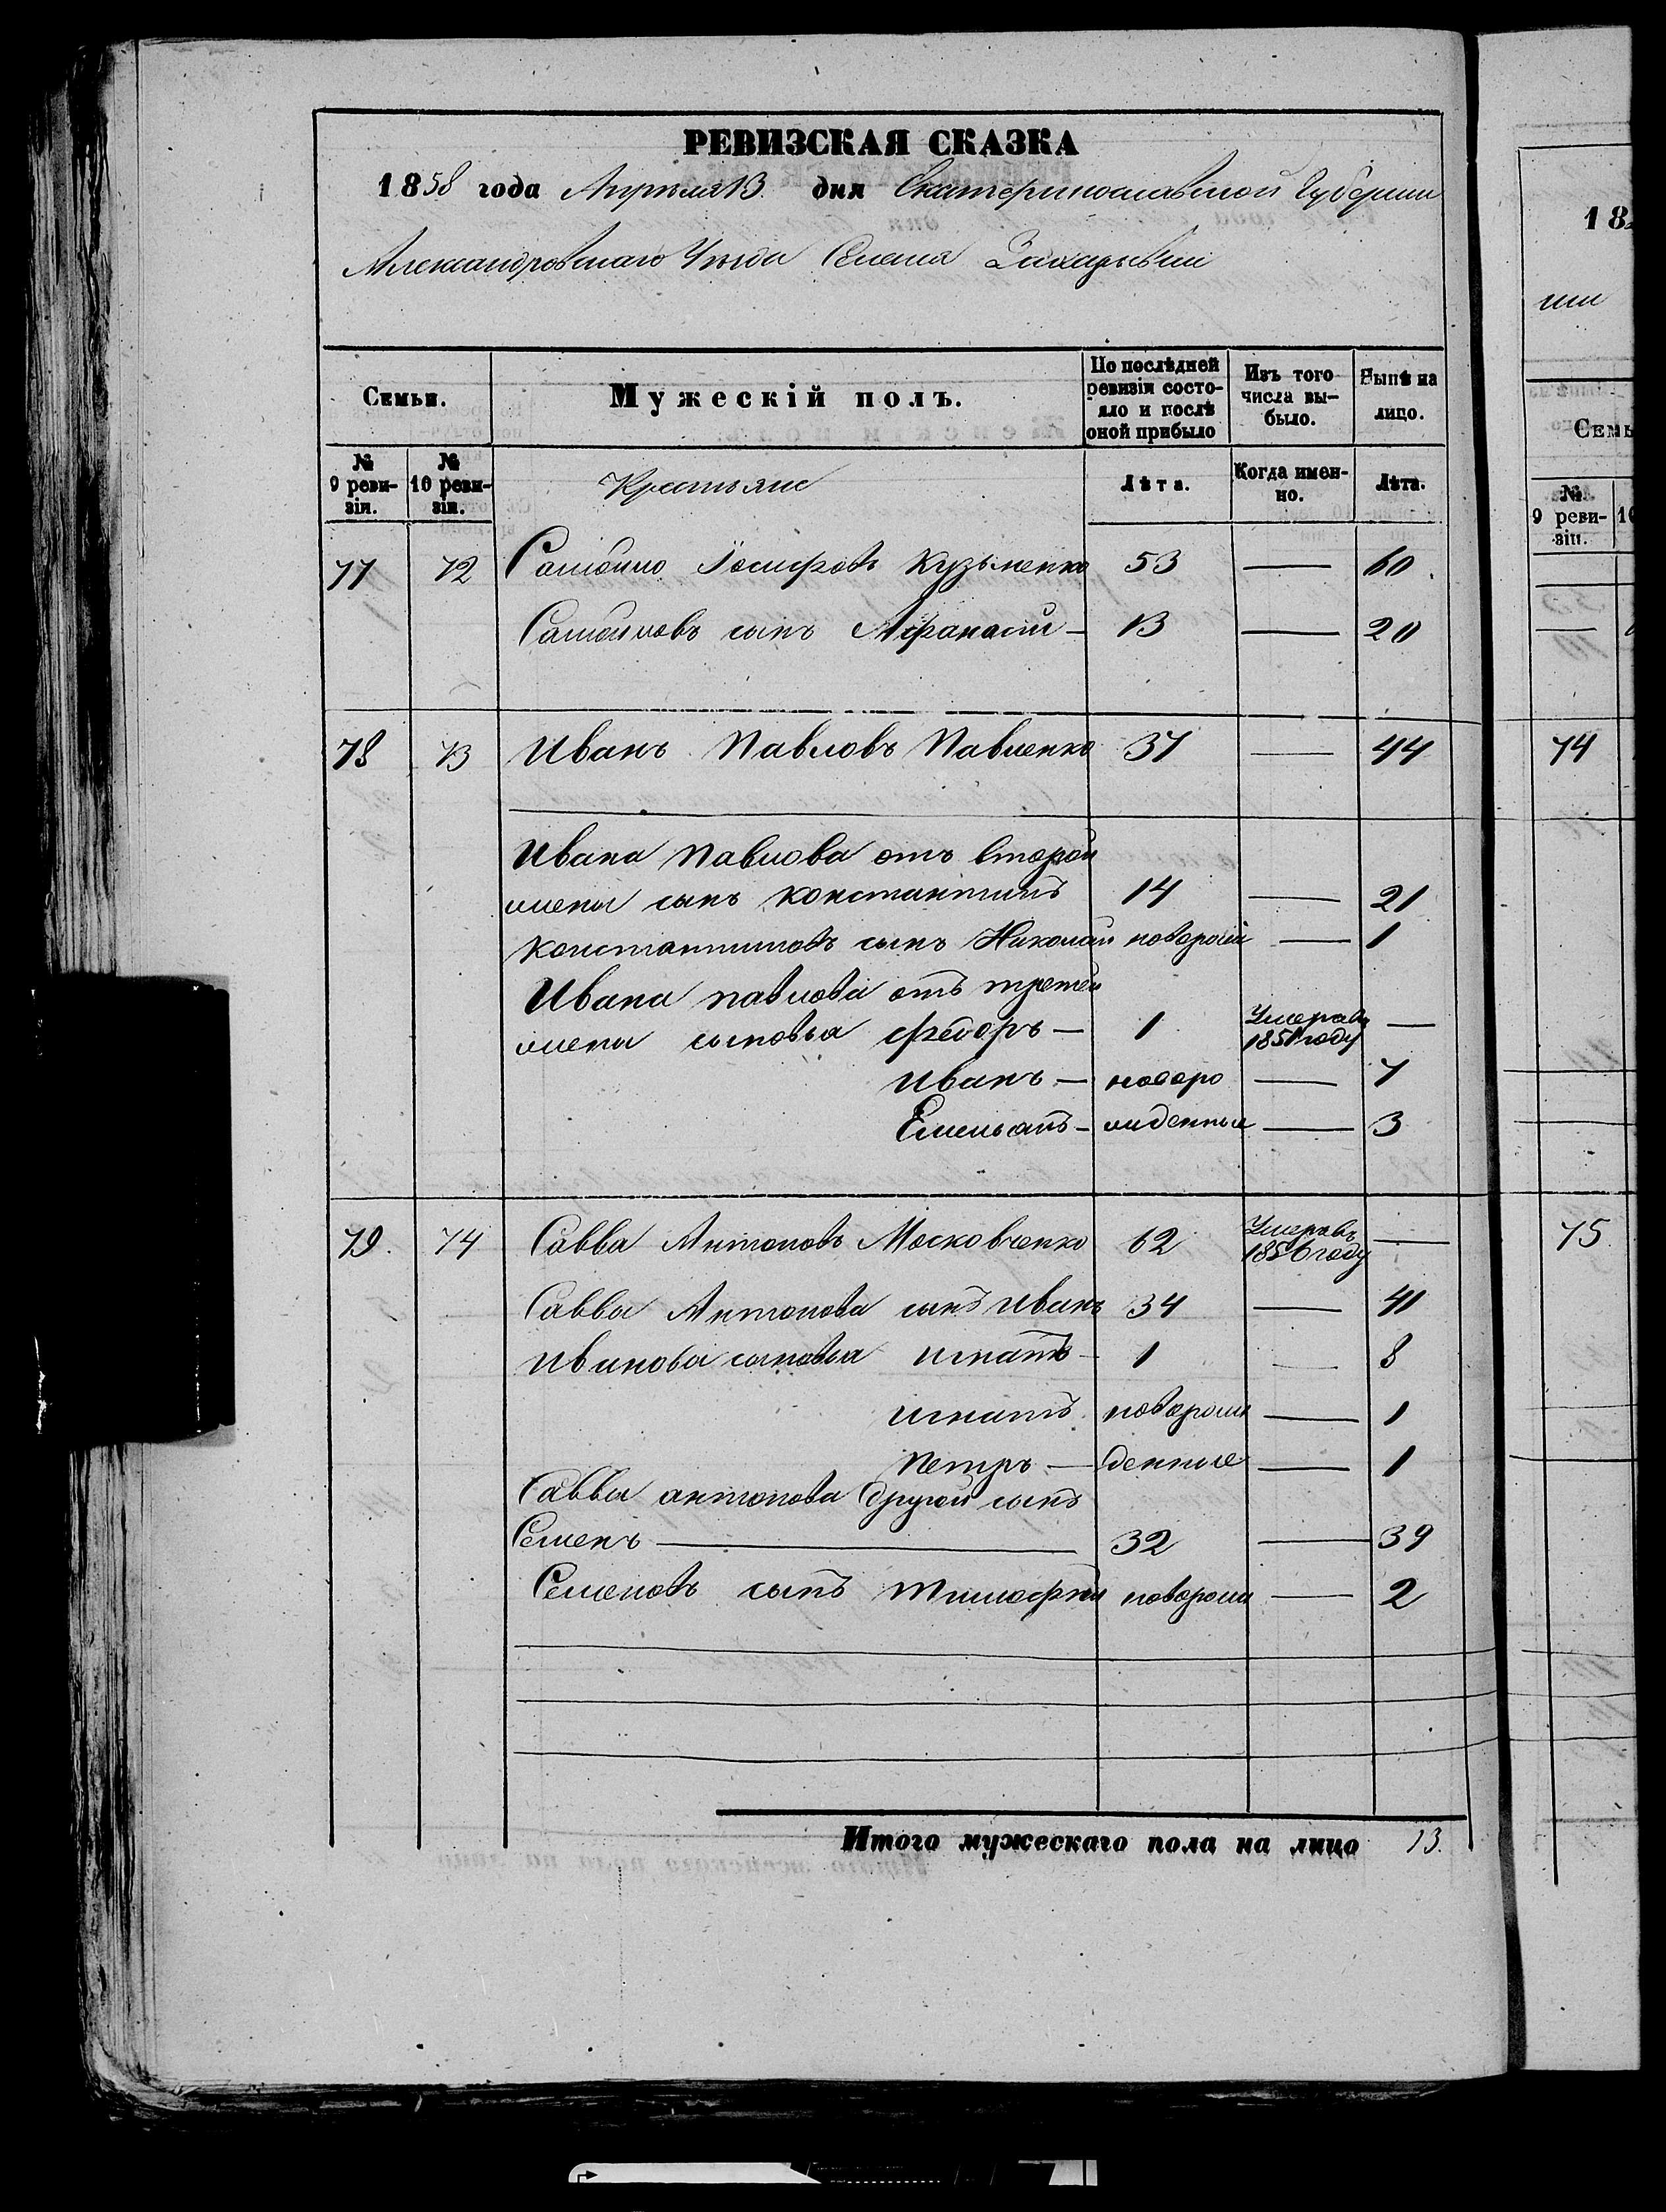 РЕВИЗСКАЯ СКАЗКА
1858 года Апрѣля 13 дня Екатеринославской Губерніи
Александровскаго Уѣзда Селенія Захарьевки
Семьи. Мужескій полъ. По послѣдней ревизіи состояло и послѣ оной прибыло Изъ того числа вы-было. Нынѣ на лицо.
№ 9 реви-зіи. № 10 реви-зіи. Крестьяне Лѣта. Когда имен-но. Лѣта.
77 72 Іосифовъ Кузьменко 53 — 60
сынъ Афанасій — 13 — 20
78 73 Иванъ Павловъ Павленко 37 — 44
Ивана Павлова отъ второй
жены сынъ Константинъ 14 — 21
Константиновъ сынъ Николай новорож — 1
Ивана Павлова отъ третей
жены сыновья Федоръ — 1 Умеръ въ 1851 году —
Иванъ — новоро — 7
Емельянъ — жденные — 3
79. 74 Савва Антоновъ Московченко 62 Умеръ въ 1856 году —
Саввы Антонова сынъ Иванъ 34 — 41
Иванова сыновья Игнатъ — 1 — 8
Игнатъ новорож — 1
Петръ — денные — 1
Саввы Антонова другой сынъ
Семенъ — 32 — 39
Семеновъ сынъ Тимофей новорож — 2
Итого мужескаго пола на лицо 13.
18
Семь
№ 9 реви-зіи.
74
75